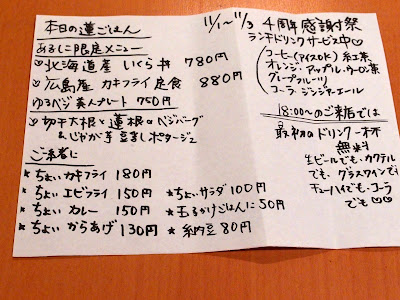 本日の蓮ごはん
あるじに限定メニュー
北海道産 いくら丼 780円
広島産 カキフライ定食 880円
ゆるベジ美人プレート 750円
切干大根と蓮根のベジバーグ
&じゃが芋豆ましポタージュ
ご一緒に
★ちょいカキフライ 180円
★ちょい エビフライ 150円
★ちょい カレー 150円
★ちょい からあげ 130円
★ちょいサラダ 100円
★玉子かけごはんに50円
★納豆 80円
11/1~11/3 4周年感謝祭
ランチドリンクサービス中♡
コーヒー(アイスOK) 紅茶
オレンジ・アップル・ウーロン茶
グレープフルーツ
コーラ ジンジャーエール
18:00〜のご来店では
最初のドリンク一杯
無料
生ビールでも・カクテル
でも、グラスワインで
チューハイでも・コーラ
でも♡♡